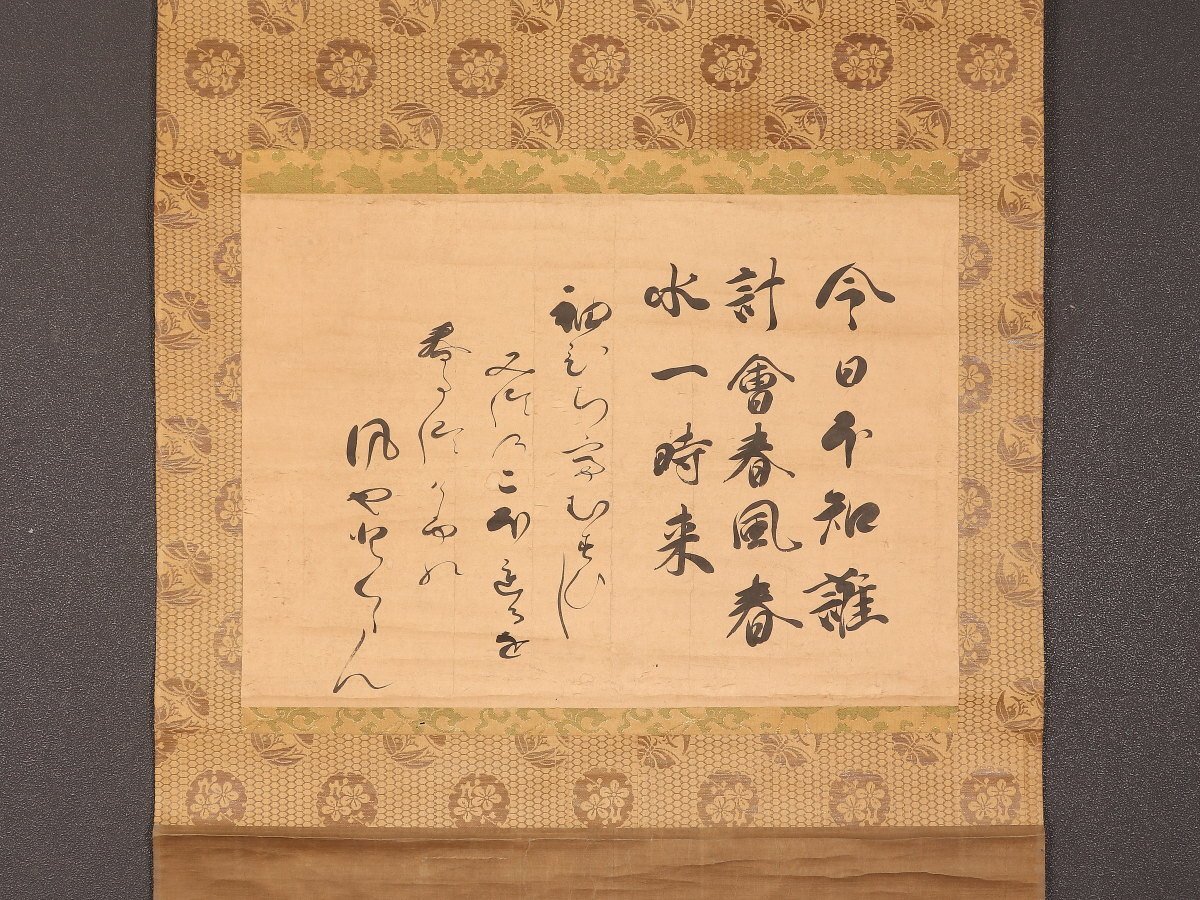 今日不知誰
計會春風春
水一時来
袖ひちてむすひし
みつのこほれるを
春たつけふの
風やとくらん